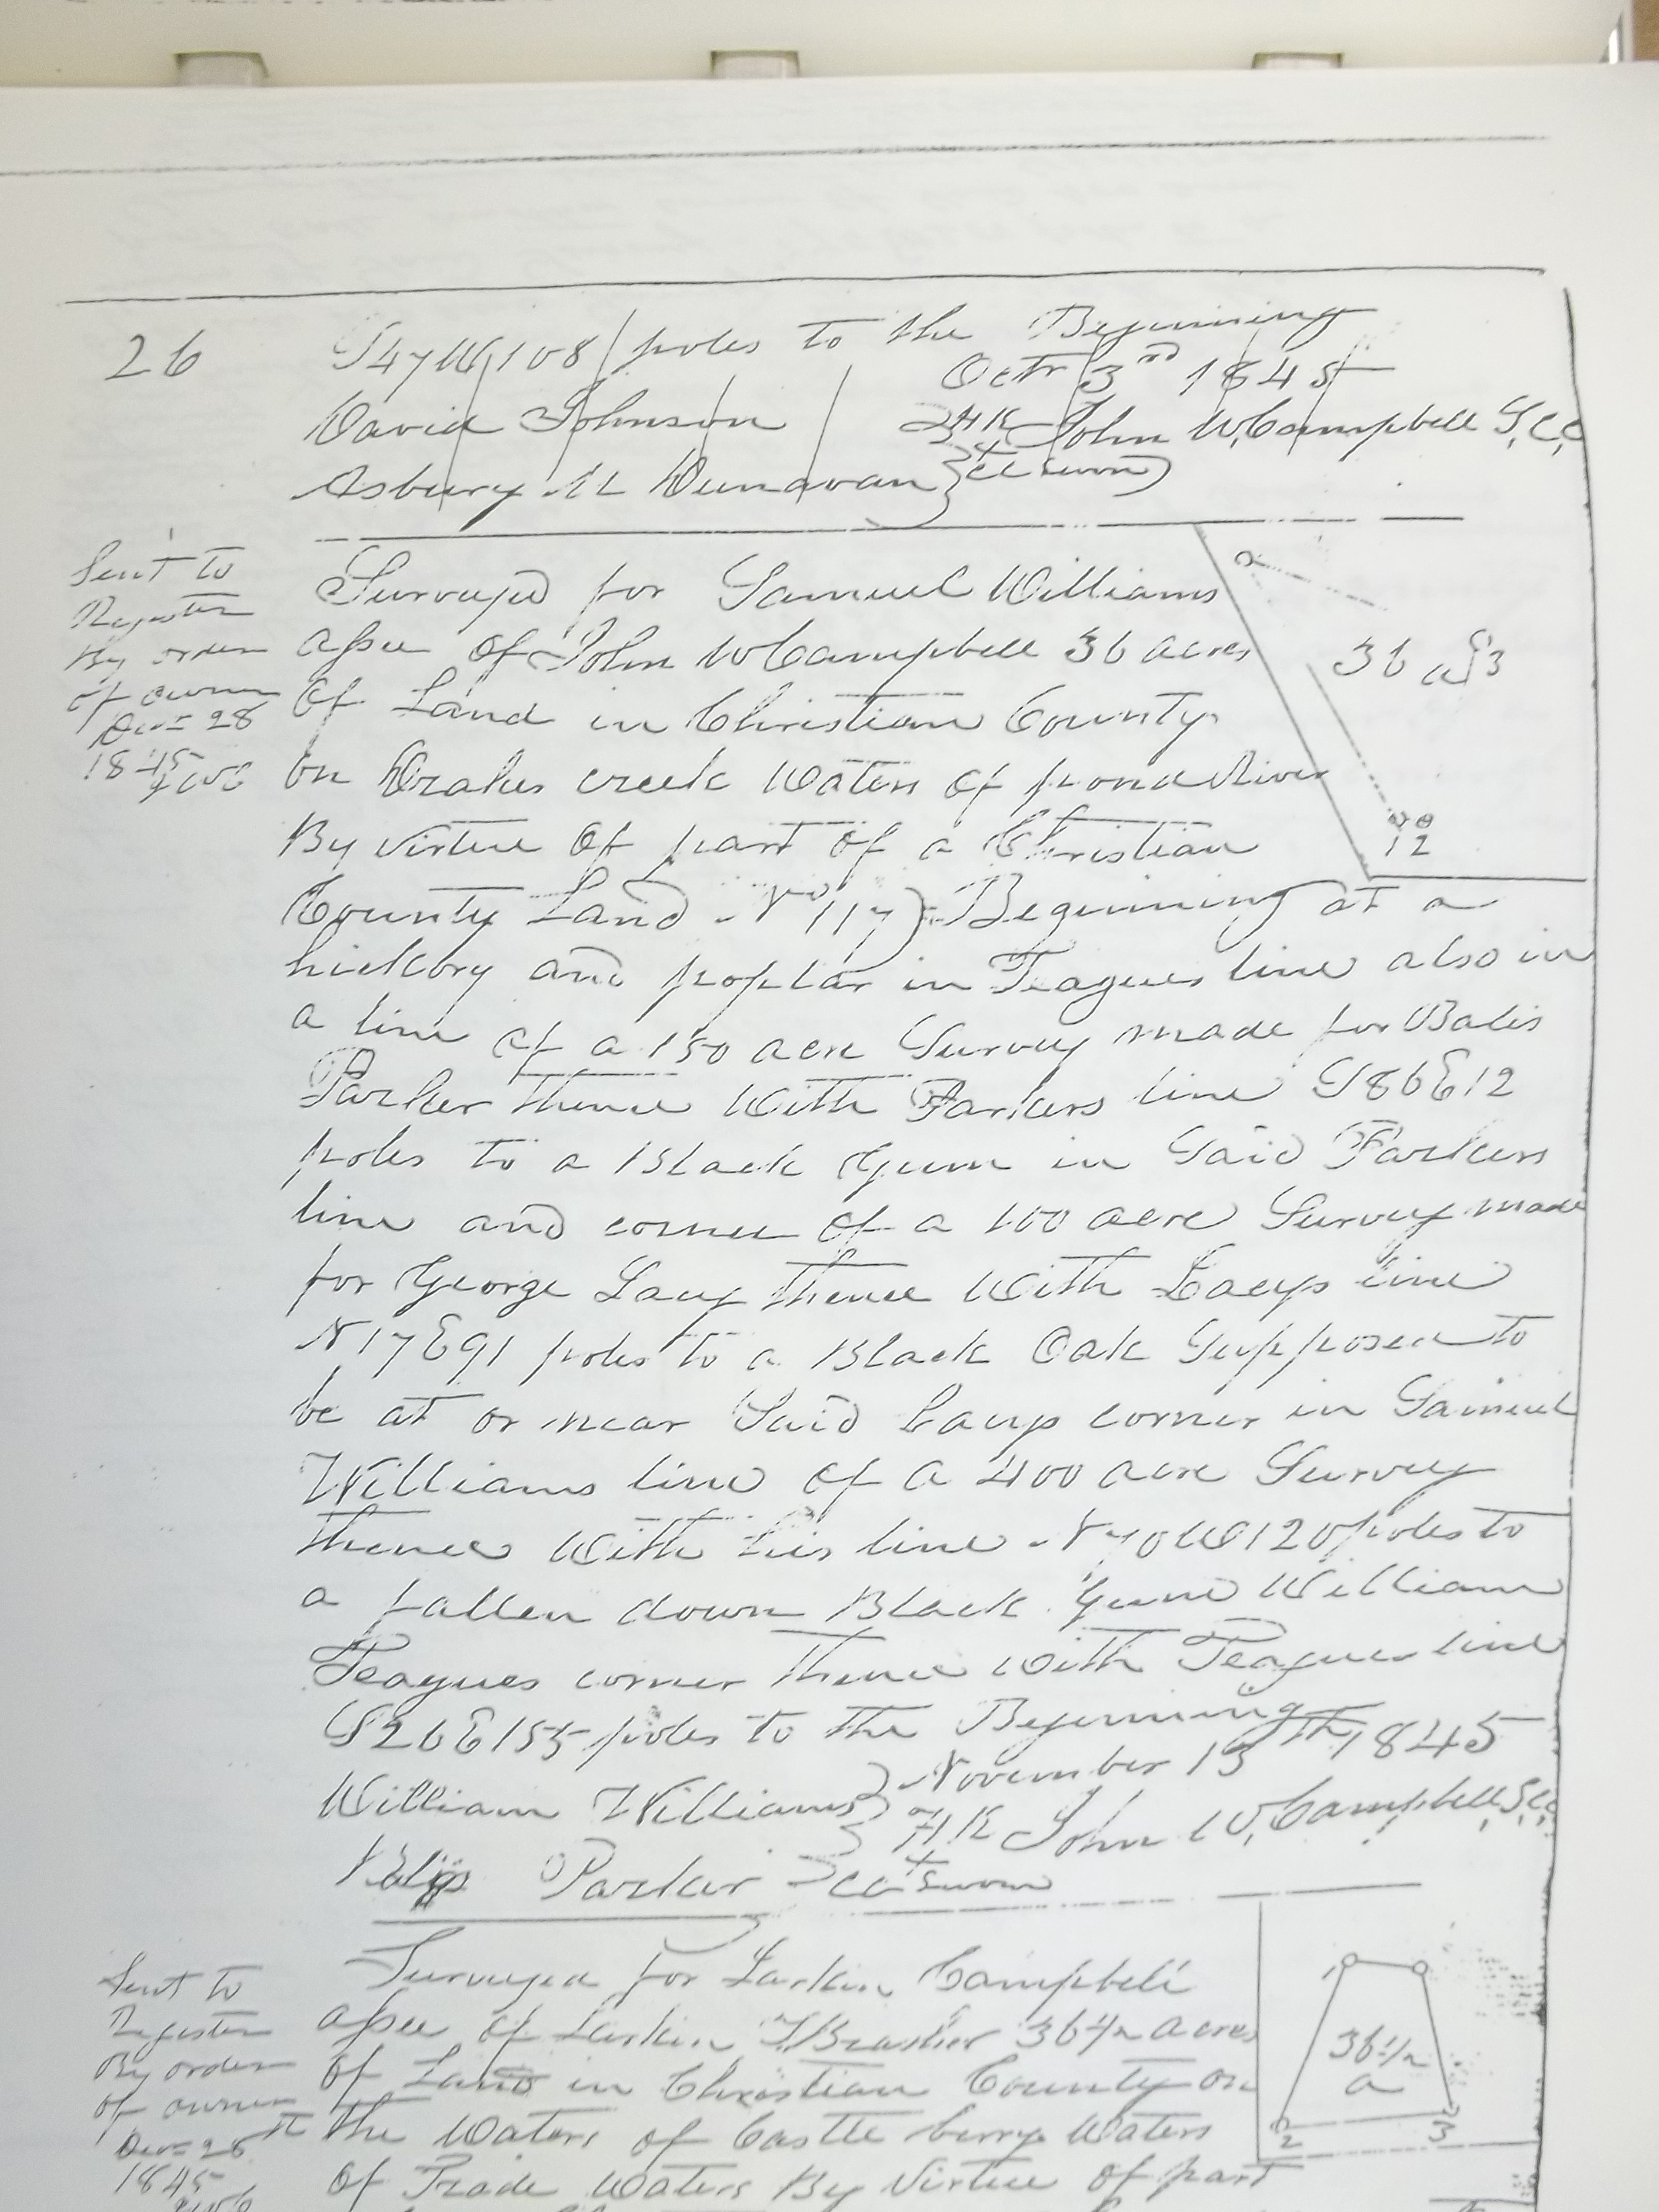 26
S47W 108 poles to the Beginning
Octr 3rd 1845
David Johnson
John W. Campbell S.C.C.
Asbury M Dunavan } cc sworn
Sent to
Register
By order
of owner
Dec 28
1845
JWC
Surveyed for Samuel Williams
assee of John W Campbell 36 acres
of Land in Christian County
on Drakes creek Waters of pond River
By virtue of part of a Christian
County Land No 117) Beginning at a
hickory and poplar in Teagues line also in
a line of a 150 acre Survey made for Balis
Parker thence With Parkers line S86E12
poles to a Black Gum in Said Parkers
line and corner of a 100 acre Survey made
for George Lacy thence With Lacys line
N17E91 poles to a Black Oak Supposed to
be at or near Said Lacys corner in Samuel
Williams line of a 400 acre Survey
thence With his line N70W120 poles to
a fallen down Black Gum William
Teagues corner thence With Teagues line
S26E155 poles to the Beginning
November 13th 1845
William Williams
John W. Campbell S.C.C.
Parker cc sworn
36 a 3
12
Sent to
Register
By order
of owner
Dec 28th
1845
JWC
Surveyed for Larkin Campbell
assee of Larkin T Brasher 36 1/2 acres
of Land in Christian County on
the Waters of Castle berry Waters
of Trade Waters By Virtue of part
1
36 1/2
a
2 3